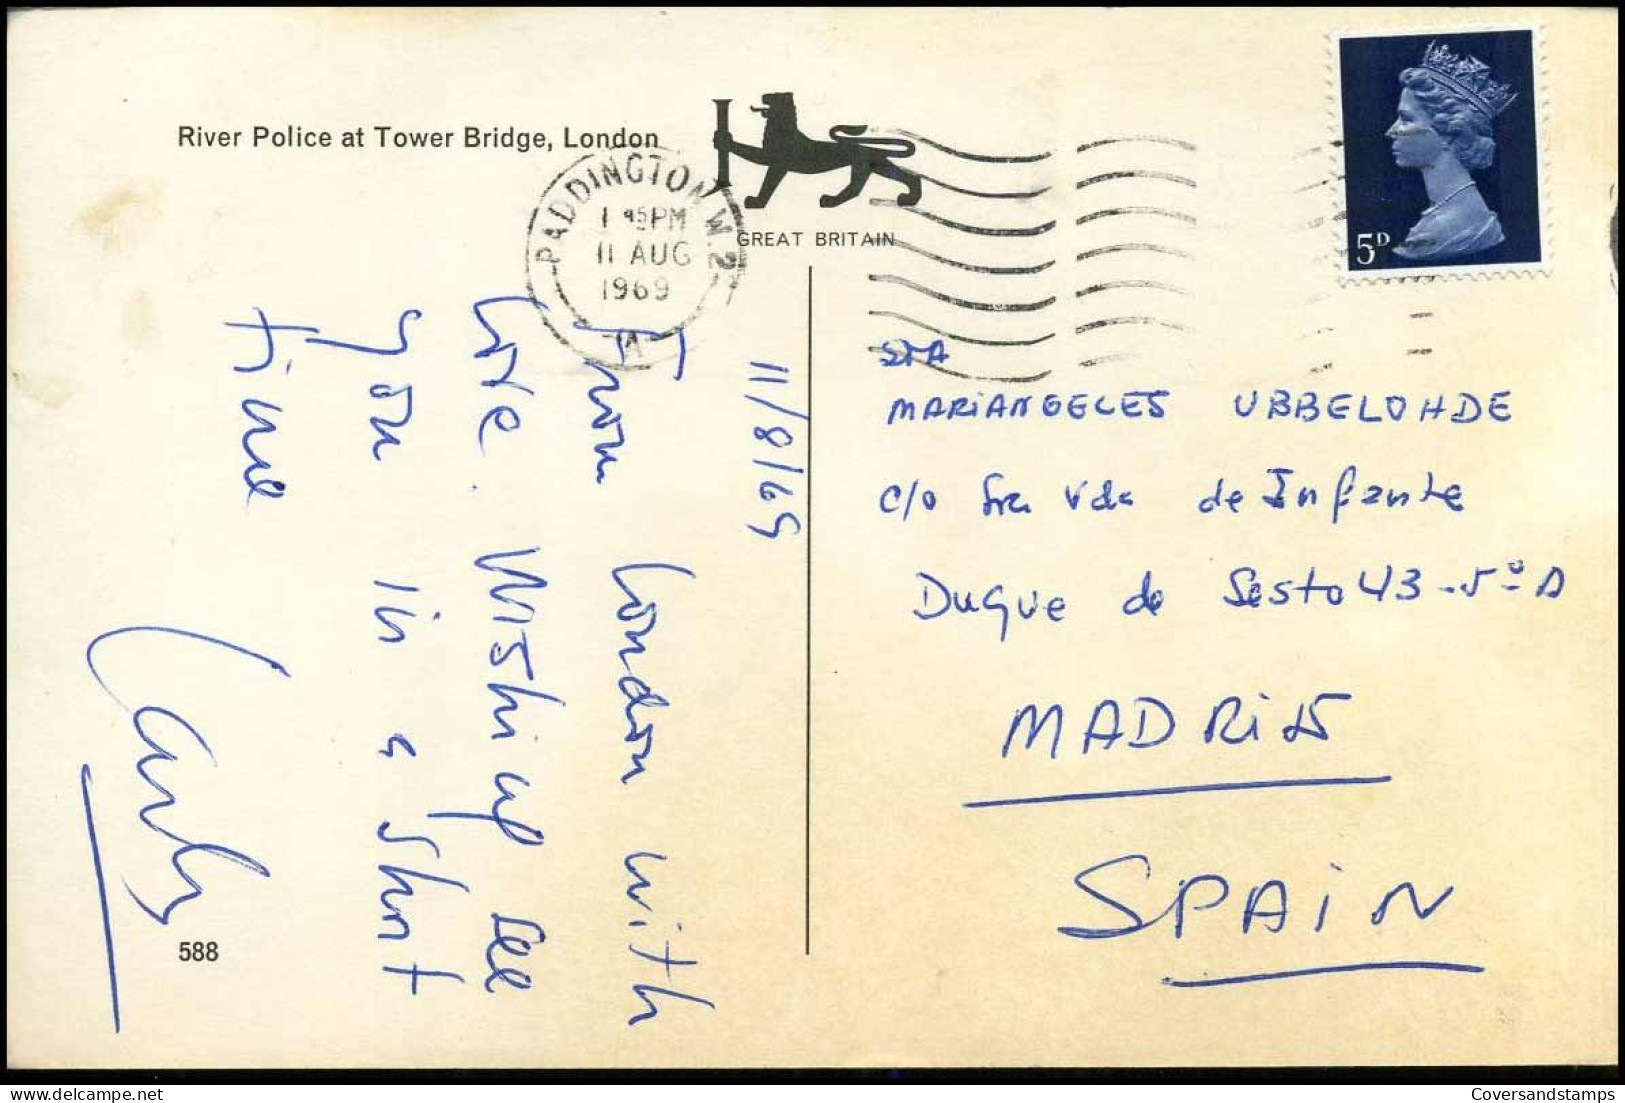 River Police at Tower Bridge, London
GREAT BRITAIN
PADDINGTON W.2
1 45PM
11 AUG
1969
A
5D
11/8/69
From London with
love. Wishing see
you in a short
time
588
STA
MARIANGELES UBBELOHDE
c/o Sra Vda de Infante
Duque de Sesto 43 - 5º D
MADRID
SPAIN
Coversandstamps